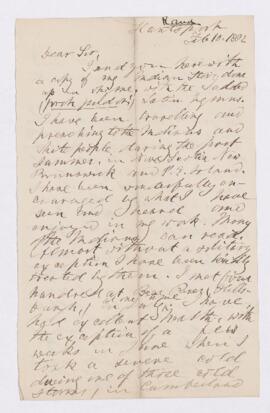 Hantsport
Feb 10. 1882
Dear Sir,
I send you herewith
a copy of my Indian Story done
up in rhyme, with the added
Latin hymns.
I have been travelling and
preaching to the Indians and
white people during the past
Summer, in Nova Scotia New
Brunswick and P. E. Island.
I have been wonderfully en-
couraged by what I have
seen and heard and
enjoyed in my work. Many
of the Indians can read.
Almost without a solitary
exception I have been kindly
treated by them. I met four
hundred at
at one time. I have
health, with
the exception of a few
weeks in when I
took a severe cold
during one of those cold
storms, in Cumberland